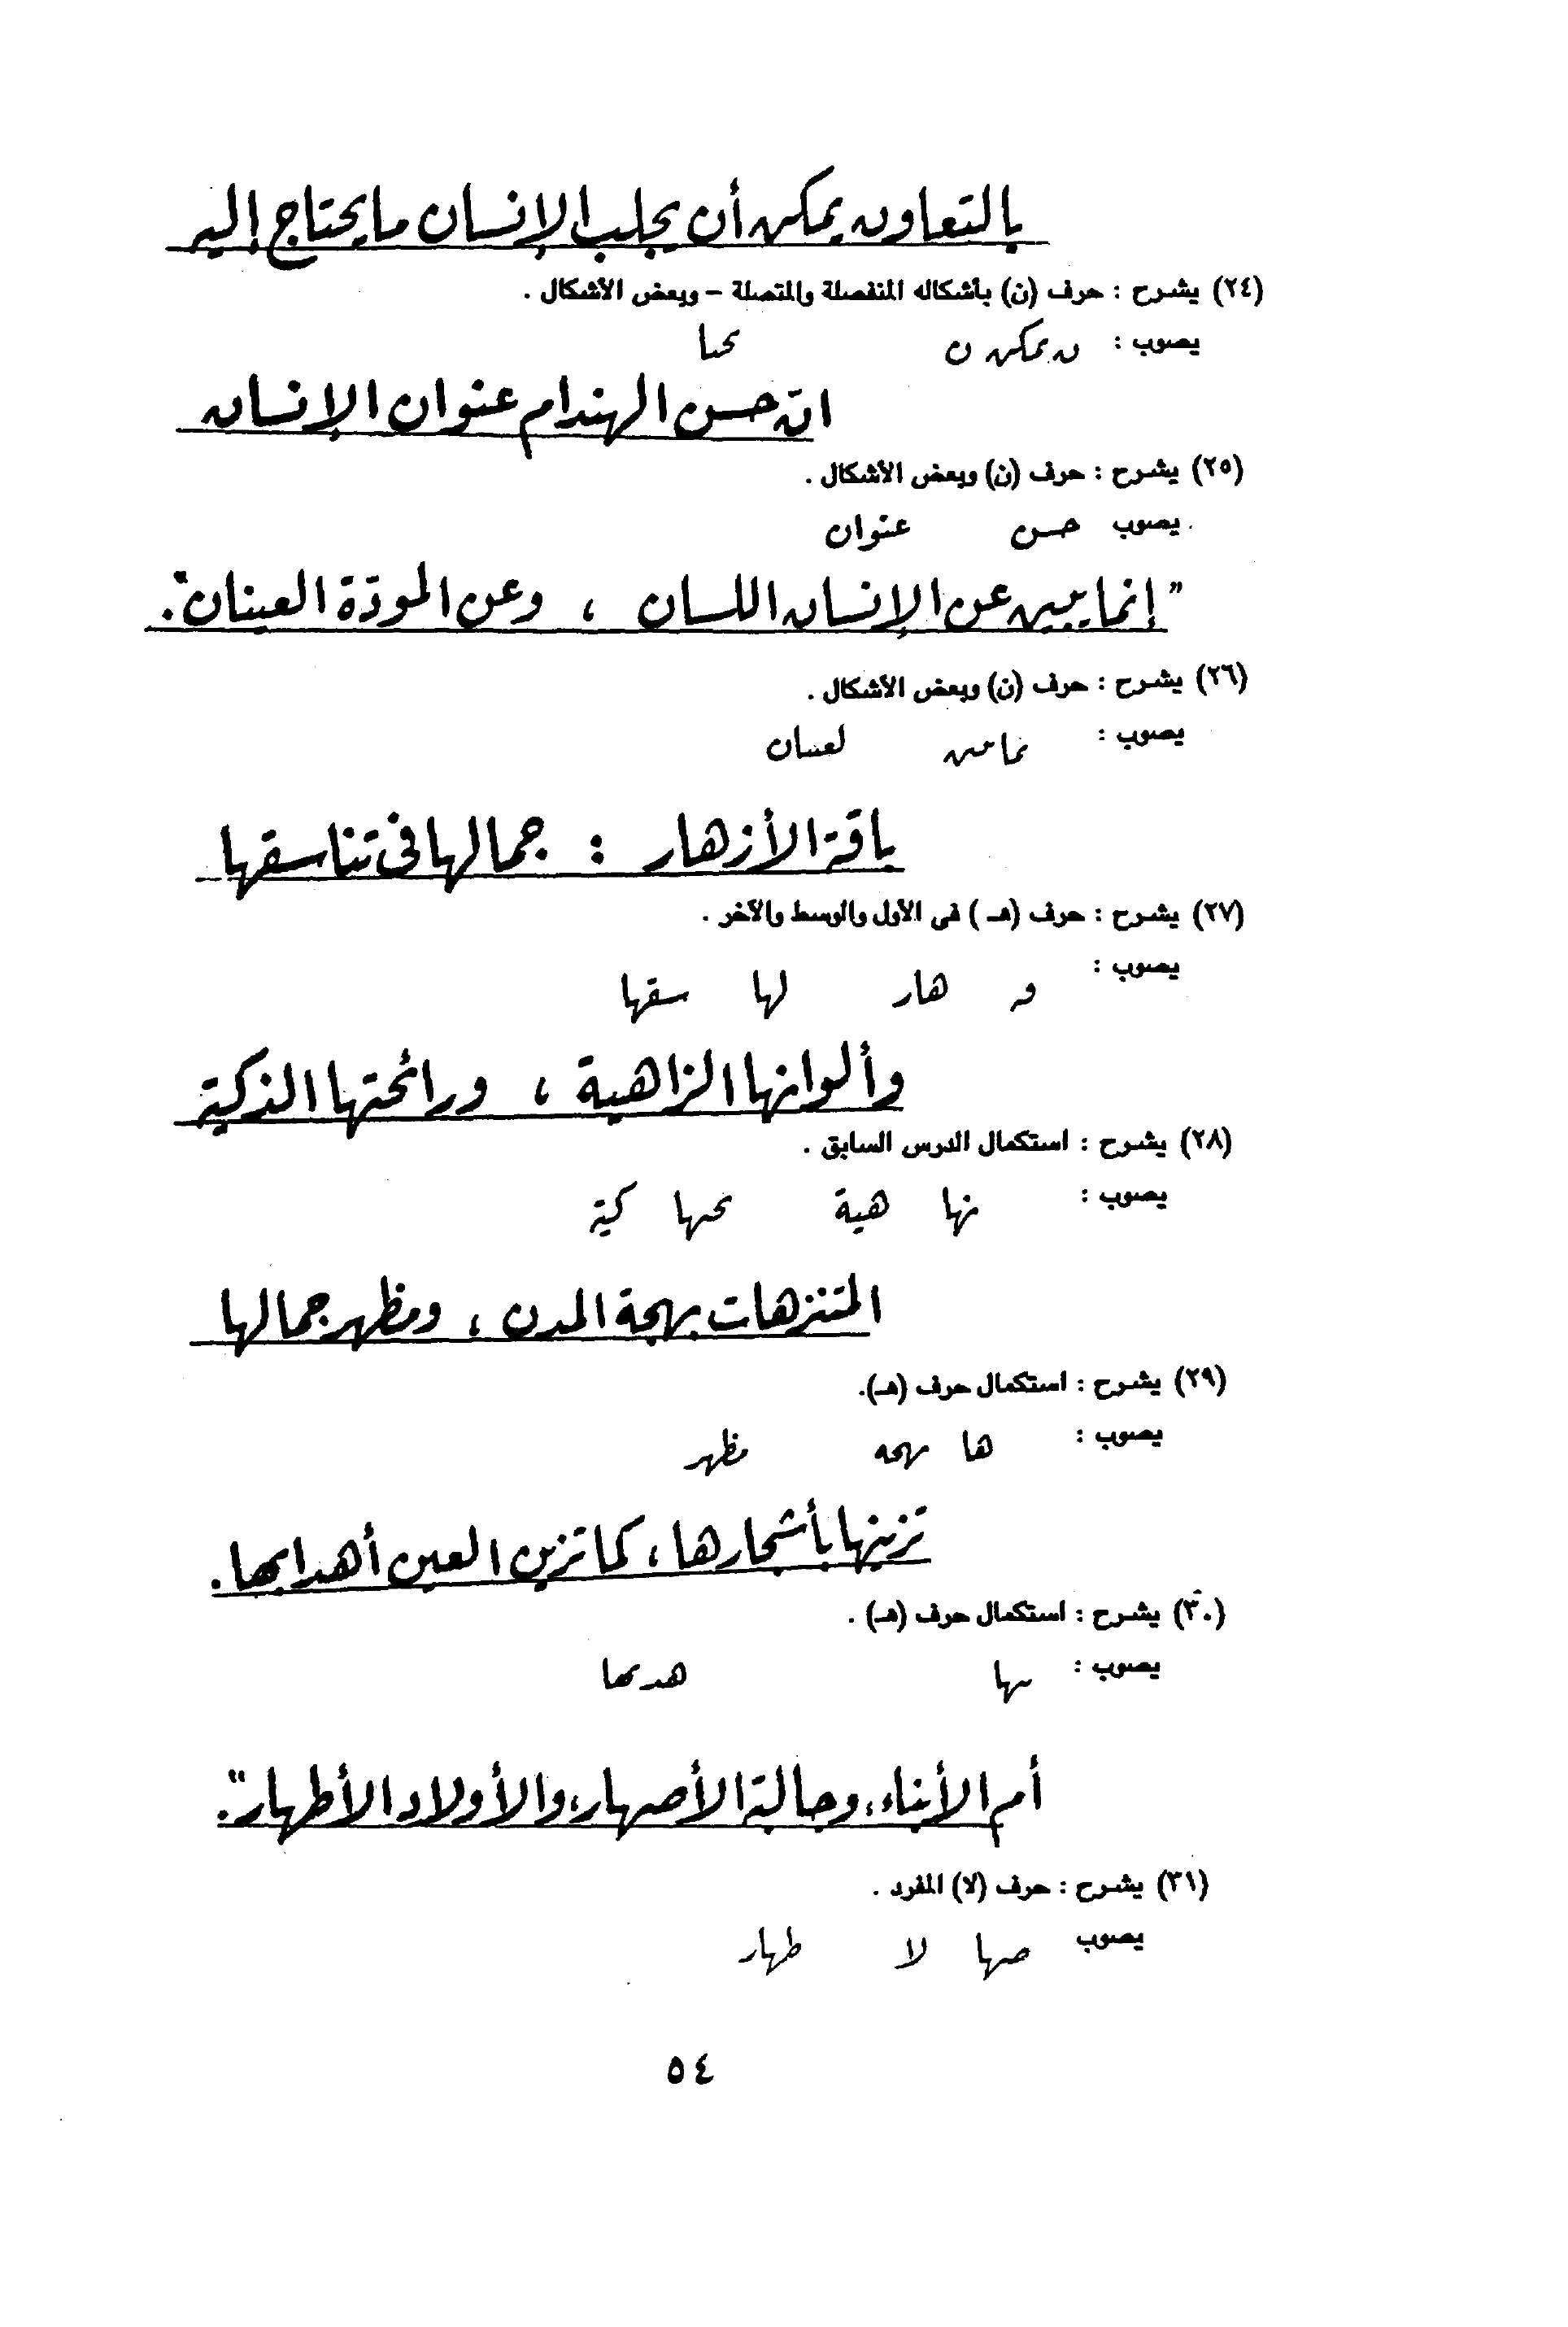 بالتعاون يمكن أن يجلب الإنسان ما يحتاج إليه
(٢٤) يشرح : حرف (ن) بأشكاله المنفصلة والمتصلة – وبعض الأشكال .
يصوب : ن يمكن ن
انّ حسن الهندام عنوان الإنسان
(٢٥) يشرح : حرف (ن) وبعض الأشكال .
يصوب حسن عنوان
" إنما يبين عن الإنسان اللسان ، وعن المودّة العينان ".
(٢٦) يشرح : حرف (ن) وبعض الأشكال .
يصوب :
باقة الأزهار : جمالها في تناسقها
(٢٧) يشرح : حرف (هـ) في الأول والوسط والآخر .
يصوب : هار لها سقها
وألوانها الزاهية ، ورائحتها الذكية
(٢٨) يشرح : استكمال الدرس السابق .
يصوب : نها هية كية
المتنزهات بهجة المدن ، ومظهر جمالها
(٢٩) يشرح : استكمال حرف (هـ).
يصوب : ها مظهر
تزينها بأشجارها ، كما تزين العين أهدابها .
(٣٠) يشرح : استكمال حرف (هـ) .
يصوب :
أم الأبناء ، وجالبة الأصهار ، والأولاد الأطهار ".
(٣١) يشرح : حرف (لا) المفرد .
يصوب صها لا طهار
٥٤